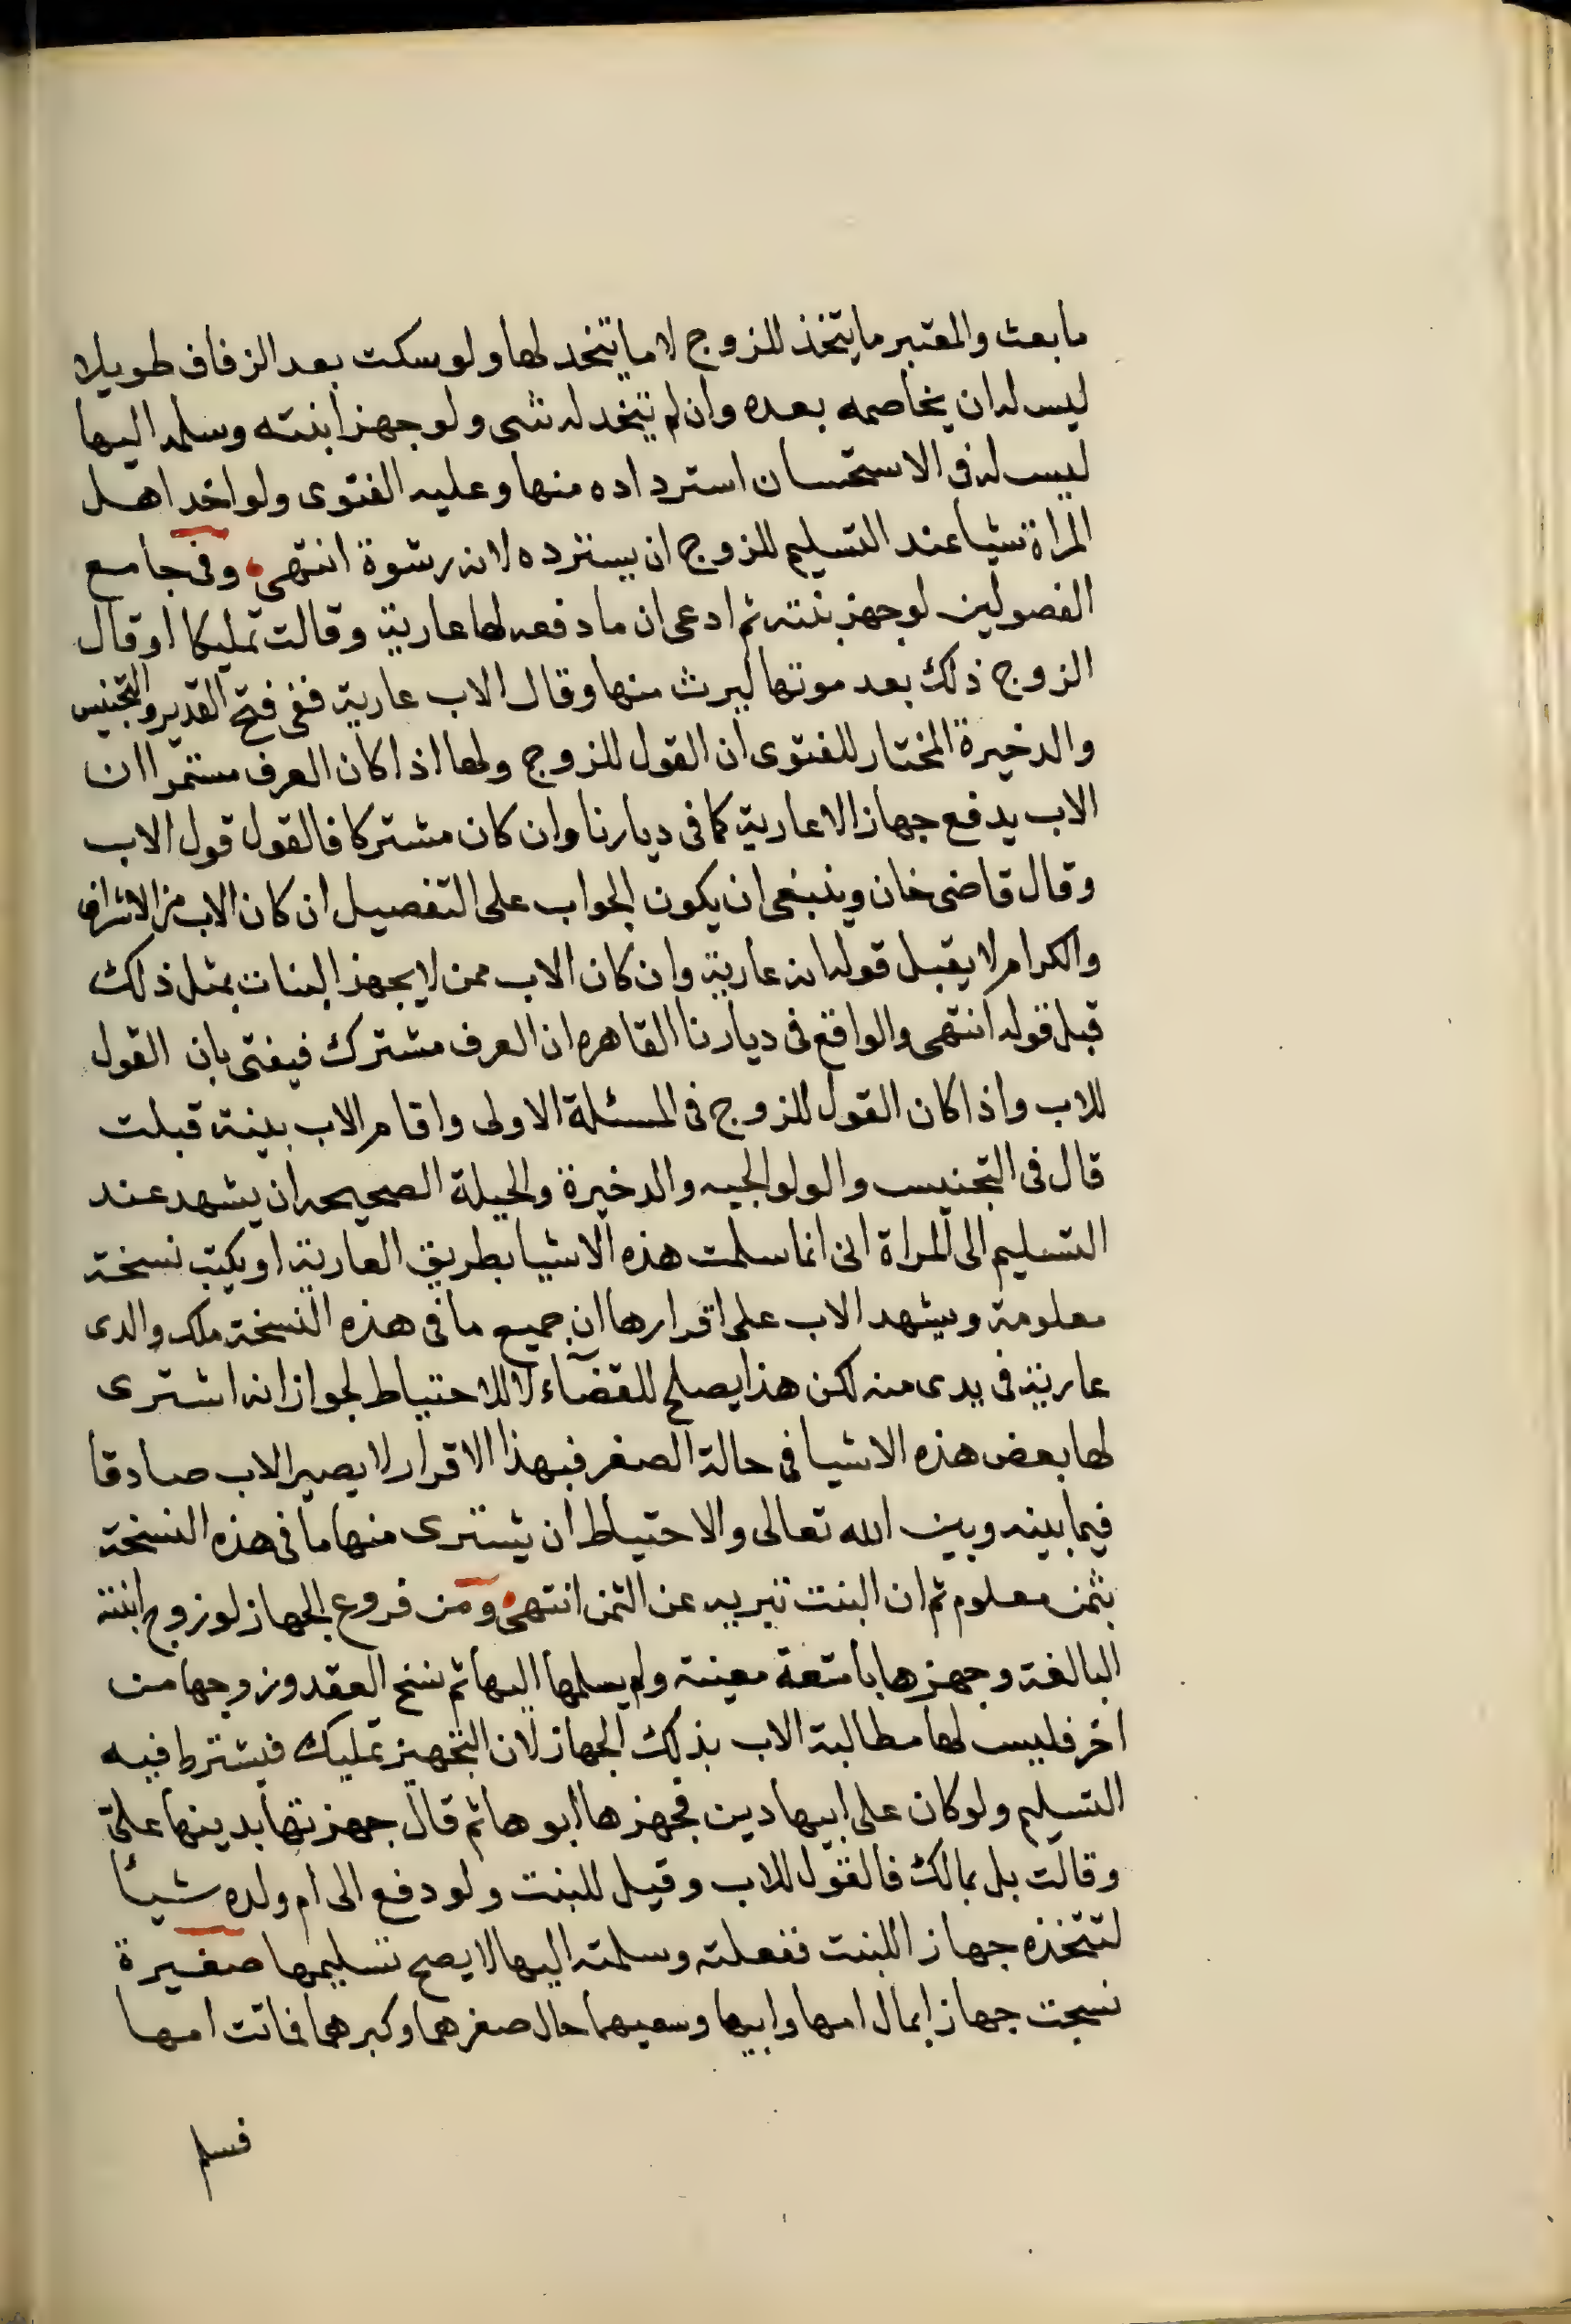 ما بعث والمعتبر ما يتخذ للزوج لا ما يتخد لها ولو سكت بعد الزفاف طويلا
ليس له ان يخاصمه بعده وان لم يتخد له شى ولو جهز ابنته وسلمه اليها
ليس له فى الاستحسان استرداده منها وعليه الفتوى ولو اخد اهل
المراة شيا عند التسليم للزوج ان يسترده لانه رشوة انتهى وفى جامع
الفصولين لو جهز بنته ثم ادعى ان ما دفعه لها عارية وقالت تمليكا او قال
الزوج ذلك بعد موتها ليرث منها وقال الاب عارية ففى فتح القدير والتجنيس
والدخيرة المختار للفتوى ان القول للزوج ولها اذا كان العرف مستمرا ان
الاب يدفع جهازا لا عارية كما فى ديارنا وان كان مشتركا فالقول قول الاب
وقال قاضى خان وينبغى ان يكون الجواب على التفصيل ان كان الاب من الاشراف
والكرام لا يقبل قوله انه عارية وان كان الاب ممن لا يجهز البنات بمثل ذلك
قبل قوله انتهى والواقع فى ديارنا القاهره ان العرف مشترك فيفتى بان القول
للاب واذا كان القول للزوج فى المسئلة الاولى واقام الاب بينة قبلت
قال فى التجنيس والولوالجيه والدخيرة والحيلة الصحيحه ان يشهد عند
التسليم الى المراة انى انما سلمت هذه الاشيا بطريق العارية او يكتب نسخة
معلومة ويشهد الاب على اقرارها ان جميع ما فى هذه النسخة ملك والدى
عارية فى يدى منه لكن هذا يصلح للقضآء لا للاحتياط لجواز انه اشترى
لها بعض هذه الاشيا فى حالة الصغر فبهذا الاقرار لا يصير الاب صادقا
فيما بينه وبين الله تعالى والاحتياط ان يشترى منها ما فى هذه النسخة
بثمن معلوم ثم ان البنت تبريه عن الثمن انتهى ومن فروع الجهاز لو زوج ابنته
البالغة وجهزها بامتعة معينة ولم يسلمها اليها ثم نسخ العقد وزوجها من
اخر فليس لها مطالبة الاب بذلك الجهاز لان التجهيز تمليك فيشترط فيه
التسليم ولو كان على ابيها دين فجهزها ابوها ثم قال جهزتها بدينها علىّ
وقالت بل بمالك فالقول للاب وقيل للبنت ولو دفع الى ام ولده شيأ
لتتخذه جهازا للبنت ففعلته وسلمته اليها لا يصح تسليمها صغيرة
نسجت جهازا بمال امها وابيها وسعيهما حال صغرهما وكبرهما فماتت امها
فسلم